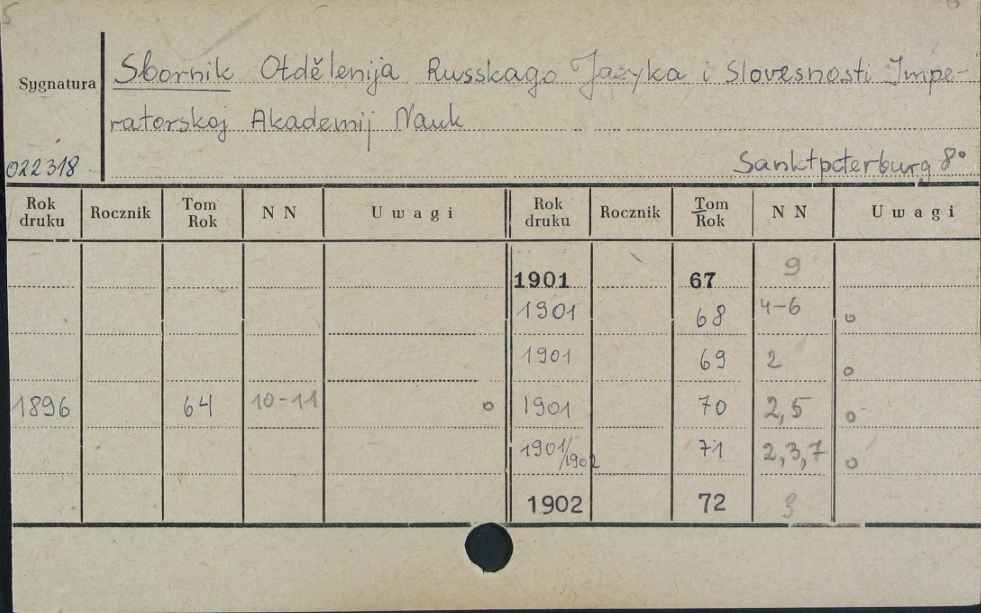 Sygnatura
Sbornik Otdělenija Russkago Jazyka i Slovesnosti Impe-
ratorskoj Akademij Nauk
022318
Sanktpeterburg 8°
Rok druku Rocznik Tom Rok NN Uwagi Rok druku Rocznik Tom Rok NN Uwagi
1901 67 9
1901 68 4-6 o
1901 69 2 o
1896 64 10-11 o 1901 70 2,5 o
1901/1902 71 2,3,7 o
1902 72 3